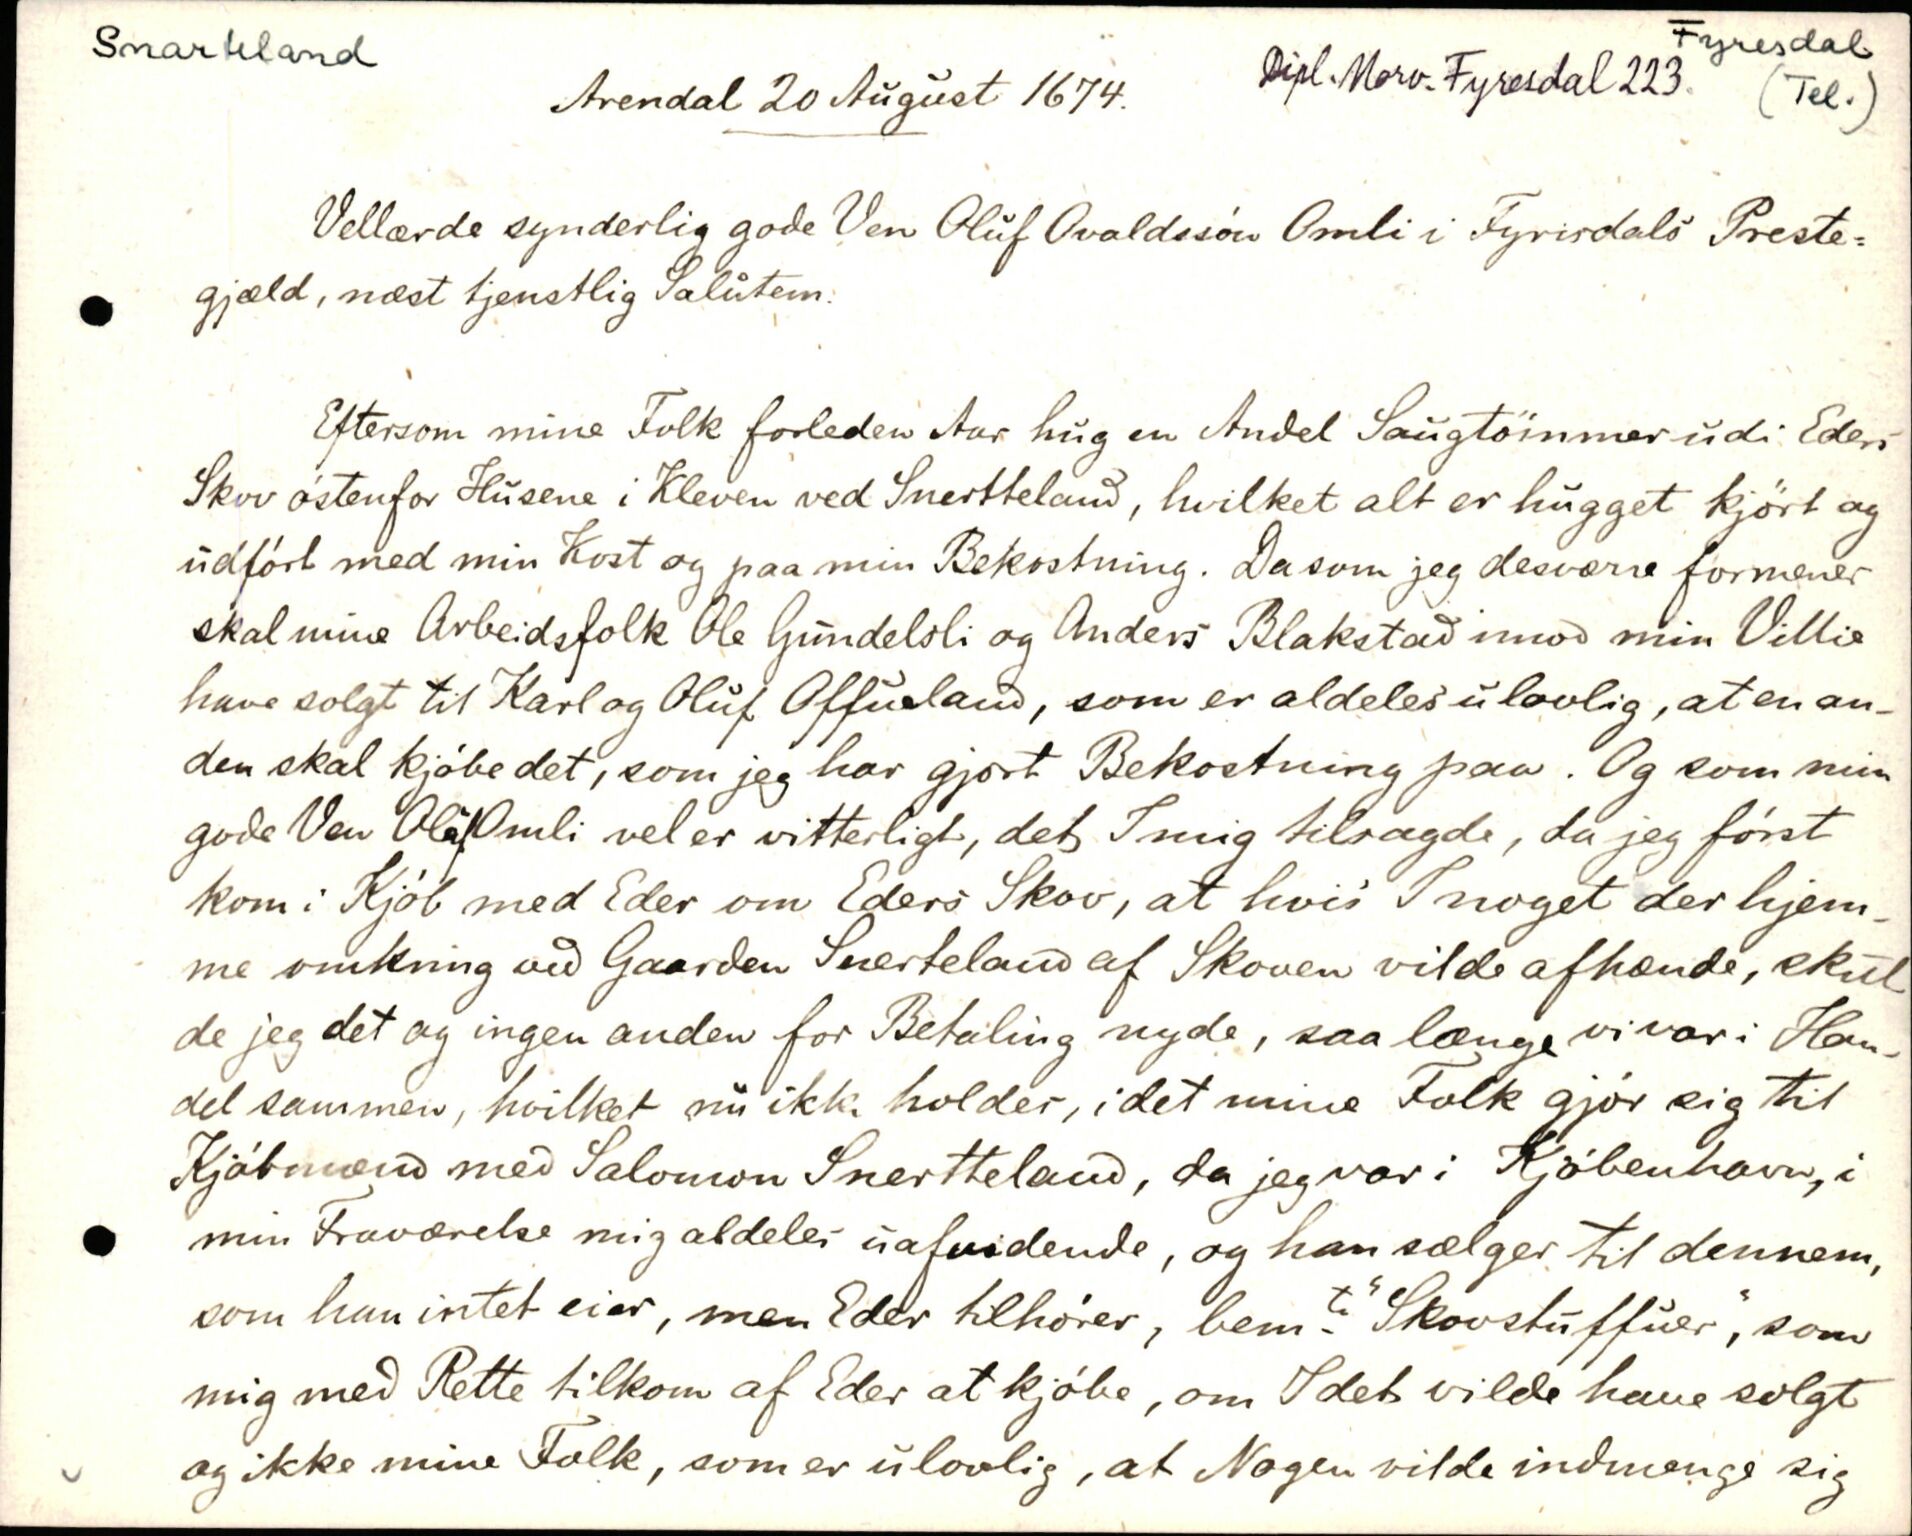 Snarteland
Fyresdal
(Tel.)
Dipl. Norv. Fyresdal 223.
Arendal 20 August 1674.
Vellærde synderlig gode Ven Oluf Ovaldssön Omli i Fyrisdals Preste=
gjæld, næst tjenstlig Salutem.
Eftersom mine Folk forleden Aar hug en Andel Saugtömmer udi Eders
Skov östenfor Husene i Kleven ved Snertteland, hvilket alt er hugget kjört og
udfört med min Kost og paa min Bekostning. Da som jeg desværre formener
skal mine Arbeidsfolk Ole Gundelsli og Anders Blakstad imod min Villie
have solgt til Karl og Oluf Offueland, som er aldeles ulovlig, at en an-
den skal kjöbe det, som jeg har gjort Bekostning paa. Og som min
gode Ven Oluf Omli vel er vitterligt, det I mig tilsagde, da jeg först
kom i Kjöb med Eder om Eders Skov, at hvis I noget der hjem-
me omkring ved Gaarden Snerteland af Skoven vilde afhænde, skul
de jeg det og ingen anden for Betaling nyde, saa længe vi var i Han-
del sammen, hvilket nu ikke holdes, idet mine Folk gjör sig til
Kjöbmænd med Salomon Snertteland, da jeg var i Kjöbenhavn, i
min Fraværelse mig aldeles uafvidende, og han sælger til dennem,
som han intet eier, men Eder tilhörer, bem.te "Skovstuffuer", som
mig med Rette tilkom af Eder at kjöbe, om I det vilde have solgt
og ikke mine Folk, som er ulovlig, at Nogen vilde indmenge sig